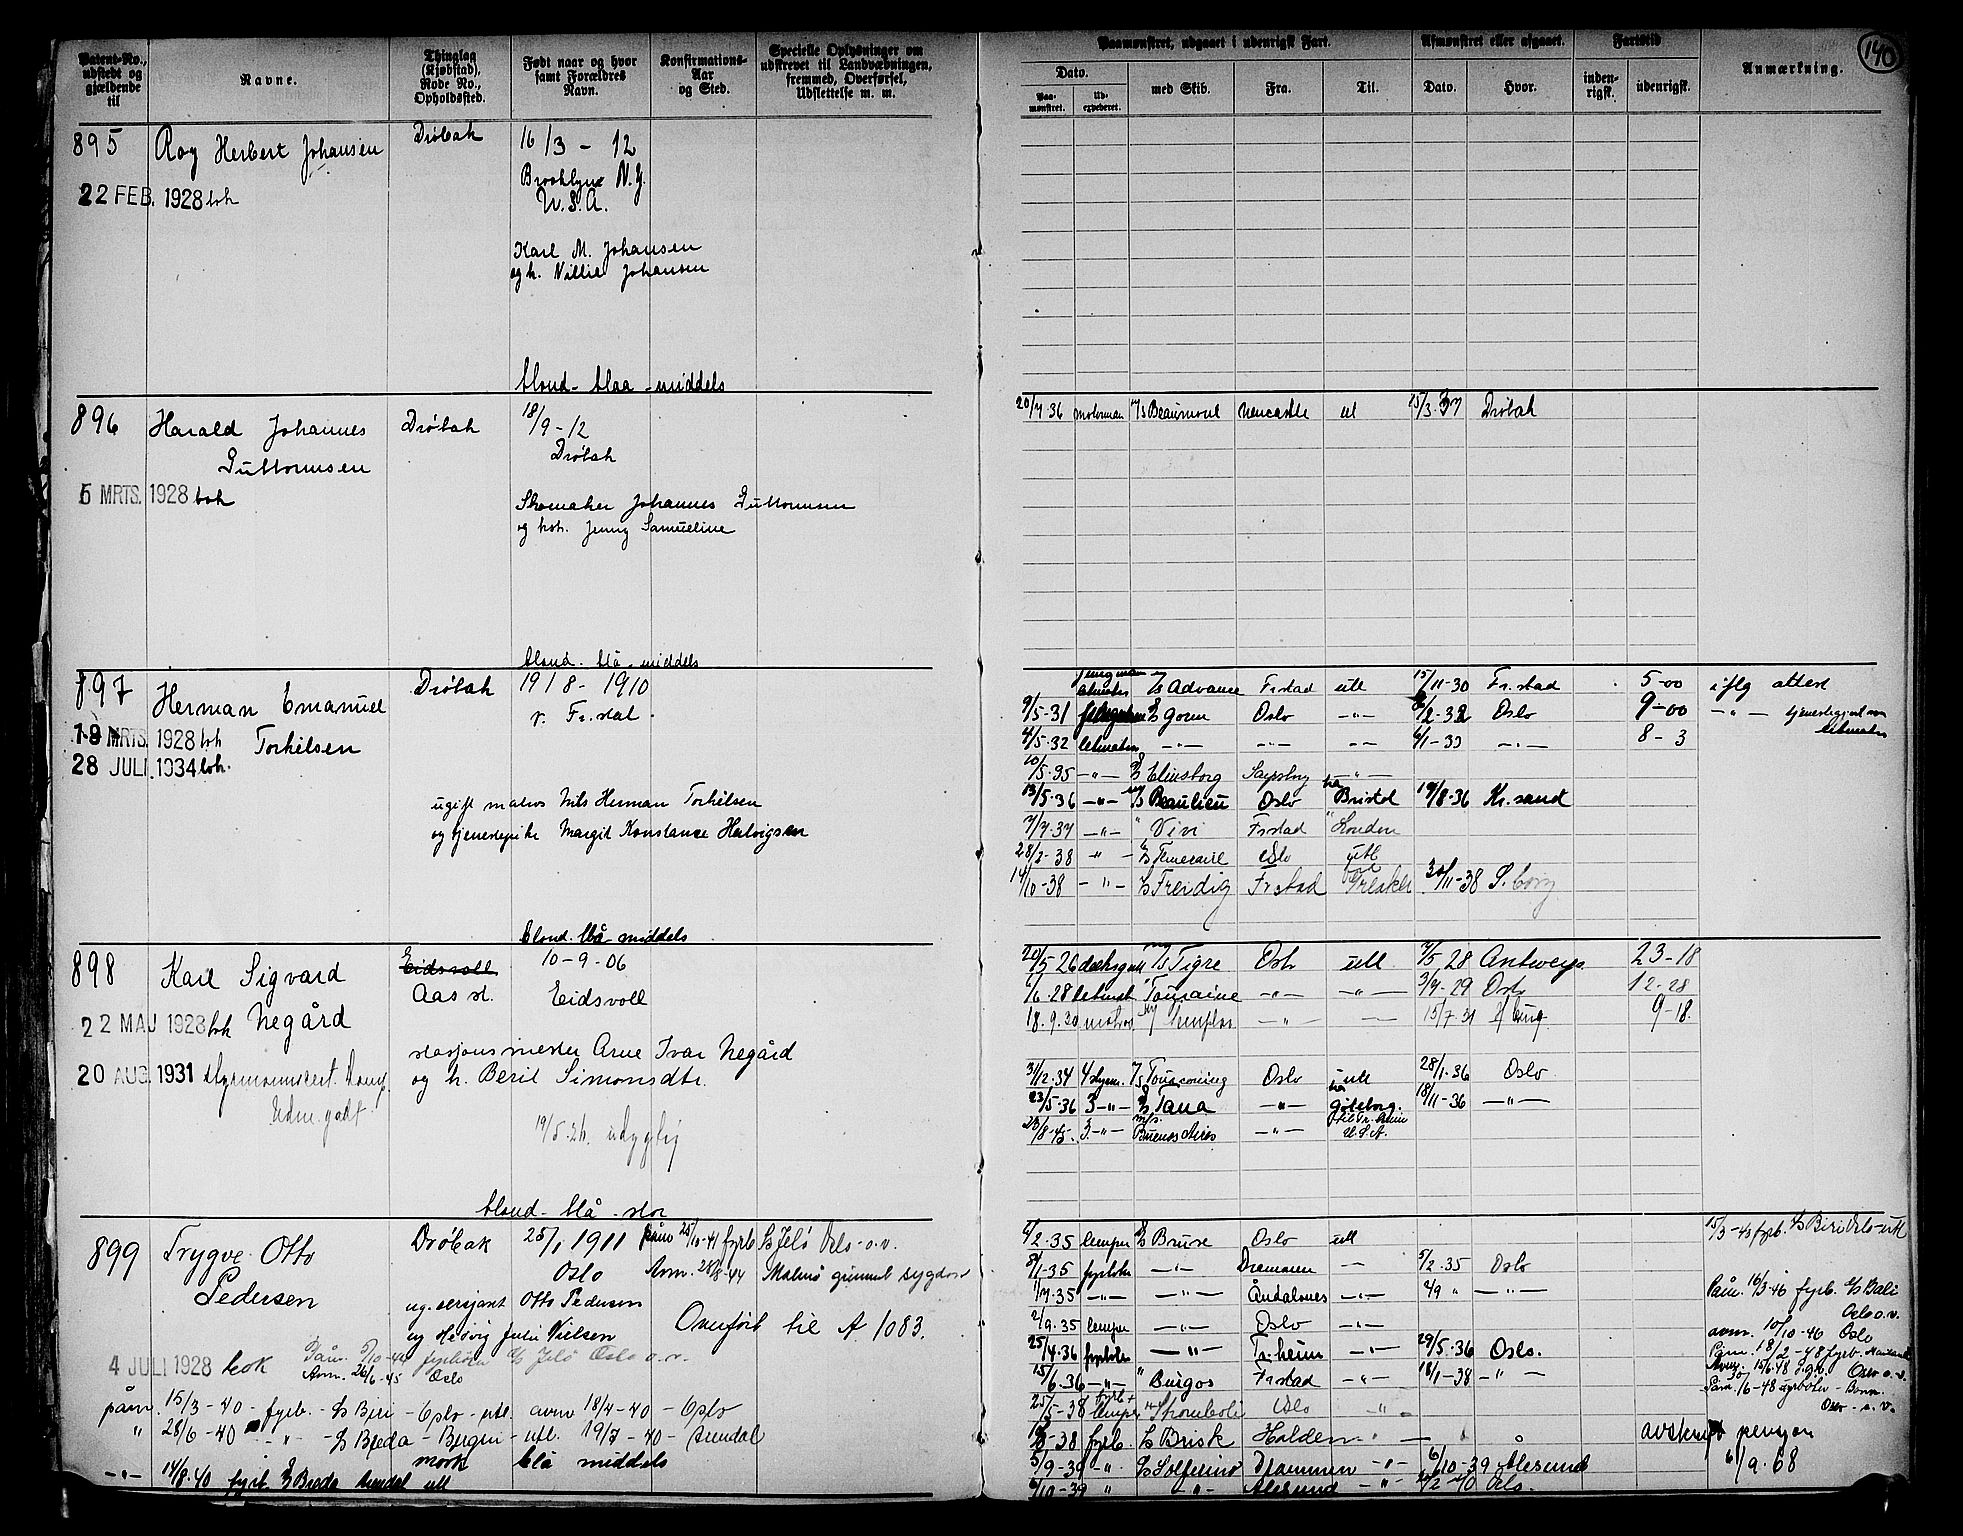 140
Patent-No., udstedt og gjældende til
Navne.
Thinglag (Kjøbstad), Rode No., Opholdssted.
Født naar og hvor samt Forældres Navn.
Konfirmations-Aar og Sted.
Specielle Oplysninger om udskrevet til Landværbningen, fremmed, Overførsel, Udslettelse m. m.
Paamønstret, udgaaet i udenrigsk Fart.
Dato.
Paa-mønstret.
Ud-expederet.
med Skib.
Fra.
Til.
Afmønstret eller afgaaet.
Dato.
Hvor.
Fartstid
inden-rigsk.
udenrigsk.
Anmærkning.
895 Roy Herbert Johansen Drøbak 16/3 - 12
Brooklyn N.Y.
22 FEB. 1928 bok U.S.A.
Karl M. Johansen
og h. Villie Johansen
blond - blaa - middels
896 Harald Johannes Drøbak 18/9 - 12
Guttormsen Drøbak
5 MRTS. 1928 bok
Skomaker Johannes Guttormsen
og hst. Jenny Samueline
blond - blå - middels
20/7-36 motorman M/S Beaumont Newcastle utl 15/3-37 Drøbak
897 Herman Emanuel Drøbak 19/8 - 1910
Torkilsen v. Fr.stad
19 MRTS. 1928 bok
28 JULI 1934 bok.
ugift matros Nils Herman Torkilsen
og tjenestepike Margit Konstance Halvigsen
blond. blå middels
jungman letmatr S/S Advance Fr.stad utl 15/11-30 Fr.stad 5-00 iflg attest
9/5-31 S/S Gorm Oslo -"- 2-32 Oslo 9-00 -"-
4/5-32 letmatros -"- -"- -"- 6/1-33 -"- 8-3
10/5-35 -"- S/S Elinsborg Sarpsborg -"-
13/5-36 -"- M/S Beaulieu Oslo Bristol 19/8-36 Kr.sand
7/7-37 -"- " Vivi Fr.stad " London
28/2-38 -"- S/S Temeraire Oslo utl
14/10-38 -"- S/S Freidig Fr.stad Greaker 30/11-38 S.borg
898 Karl Sigvard Eidsvoll 10-9-06
Negård Aas st. Eidsvoll
22 MAJ 1928 bok
20 AUG. 1931
stasjonsmester Arne Ivar Negård
og h. Beril Simonsdtr.
19/5-26 udygtig
blond - blå - stor
20/5-26 dæksgut M/S Tigre Oslo utl 7/5 28 Antwerp. 23-18
6/6-28 letmatr " Touraine -"- -"- 3/7-29 Oslo 12-28
18.9.30 matros -"- 15/7-31 9-18.
3/12-34 4 styrm. M/S Oslo utl 28/1-36 Oslo
23/5-36 3-"- S/S Tana -"- Gøteborg. 18/11-36 -"-
23/8-45. 3.-"- m/s. Buenos Aires -"- U.S.A.
899 Trygve Otto Pedersen Drøbak 25/1 1911 Oslo
påm 25/10-41 fyrb S/S Jelø Oslo - o.v.
Avm. 28/8-44 Malmø grunnet sygdom
ug. sersjant Otto Pedersen
og Hedvig Julie Nielsen
Overført til A 1083.
4 JULI 1928 bok
Påm. 5/10-44 fyrbøter S/S Jelø Oslo o.v.
Avm. 26/6-45 Oslo
påm. 15/3-40 - fyrb. - S/S Beri - Oslo - utl. avm 18/4-40 - Oslo
" 28/6-40 - " - S/S Breda - Bergen - utl. 19/7-40 - Arendal
mørk blå middels
-"- 14/8-40 fyrb. S/S Breda Arendal utl
6/2-35 lemper S/S Bruse Oslo utl
8/1-35 fyrbøter -"- Drammen -"- 5/2-35 Oslo
1/7-35 -"- -"- Åndalsnes -"- 4/9 " -"-
2/9-35 lemper -"- Oslo -"-
25/4-36 fyrbøter -"- Tr.heim -"- 29/5-36 Oslo.
15/6-36 -"- " Burgos Fr.stad -"- 18/1-38 -"-
25/5-38 fyrb + lemper " Stromboli Oslo -"-
-38 fyrb. S/S Brisk Halden -"-
5/9-39 -"- S/S Solferino Drammen -"- 6/10-39 Ålesund
/10-39 " -"- Ålesund -"- /2-40 Oslo.
15/3-43 fyrb. S/S Beri Oslo - utl
Påm. 16/3-46 fyrb. S/S Bali
Oslo o.v.
avm. 10/10-46 Oslo
Påm. 18/2-48 fyrb.
Avm. 15/6-48 Oslo o.v.
Påm. 30/6-48 fyrbøter - Bomm.
Oslo - o.v.
avskrevet pensjon
6/9.68